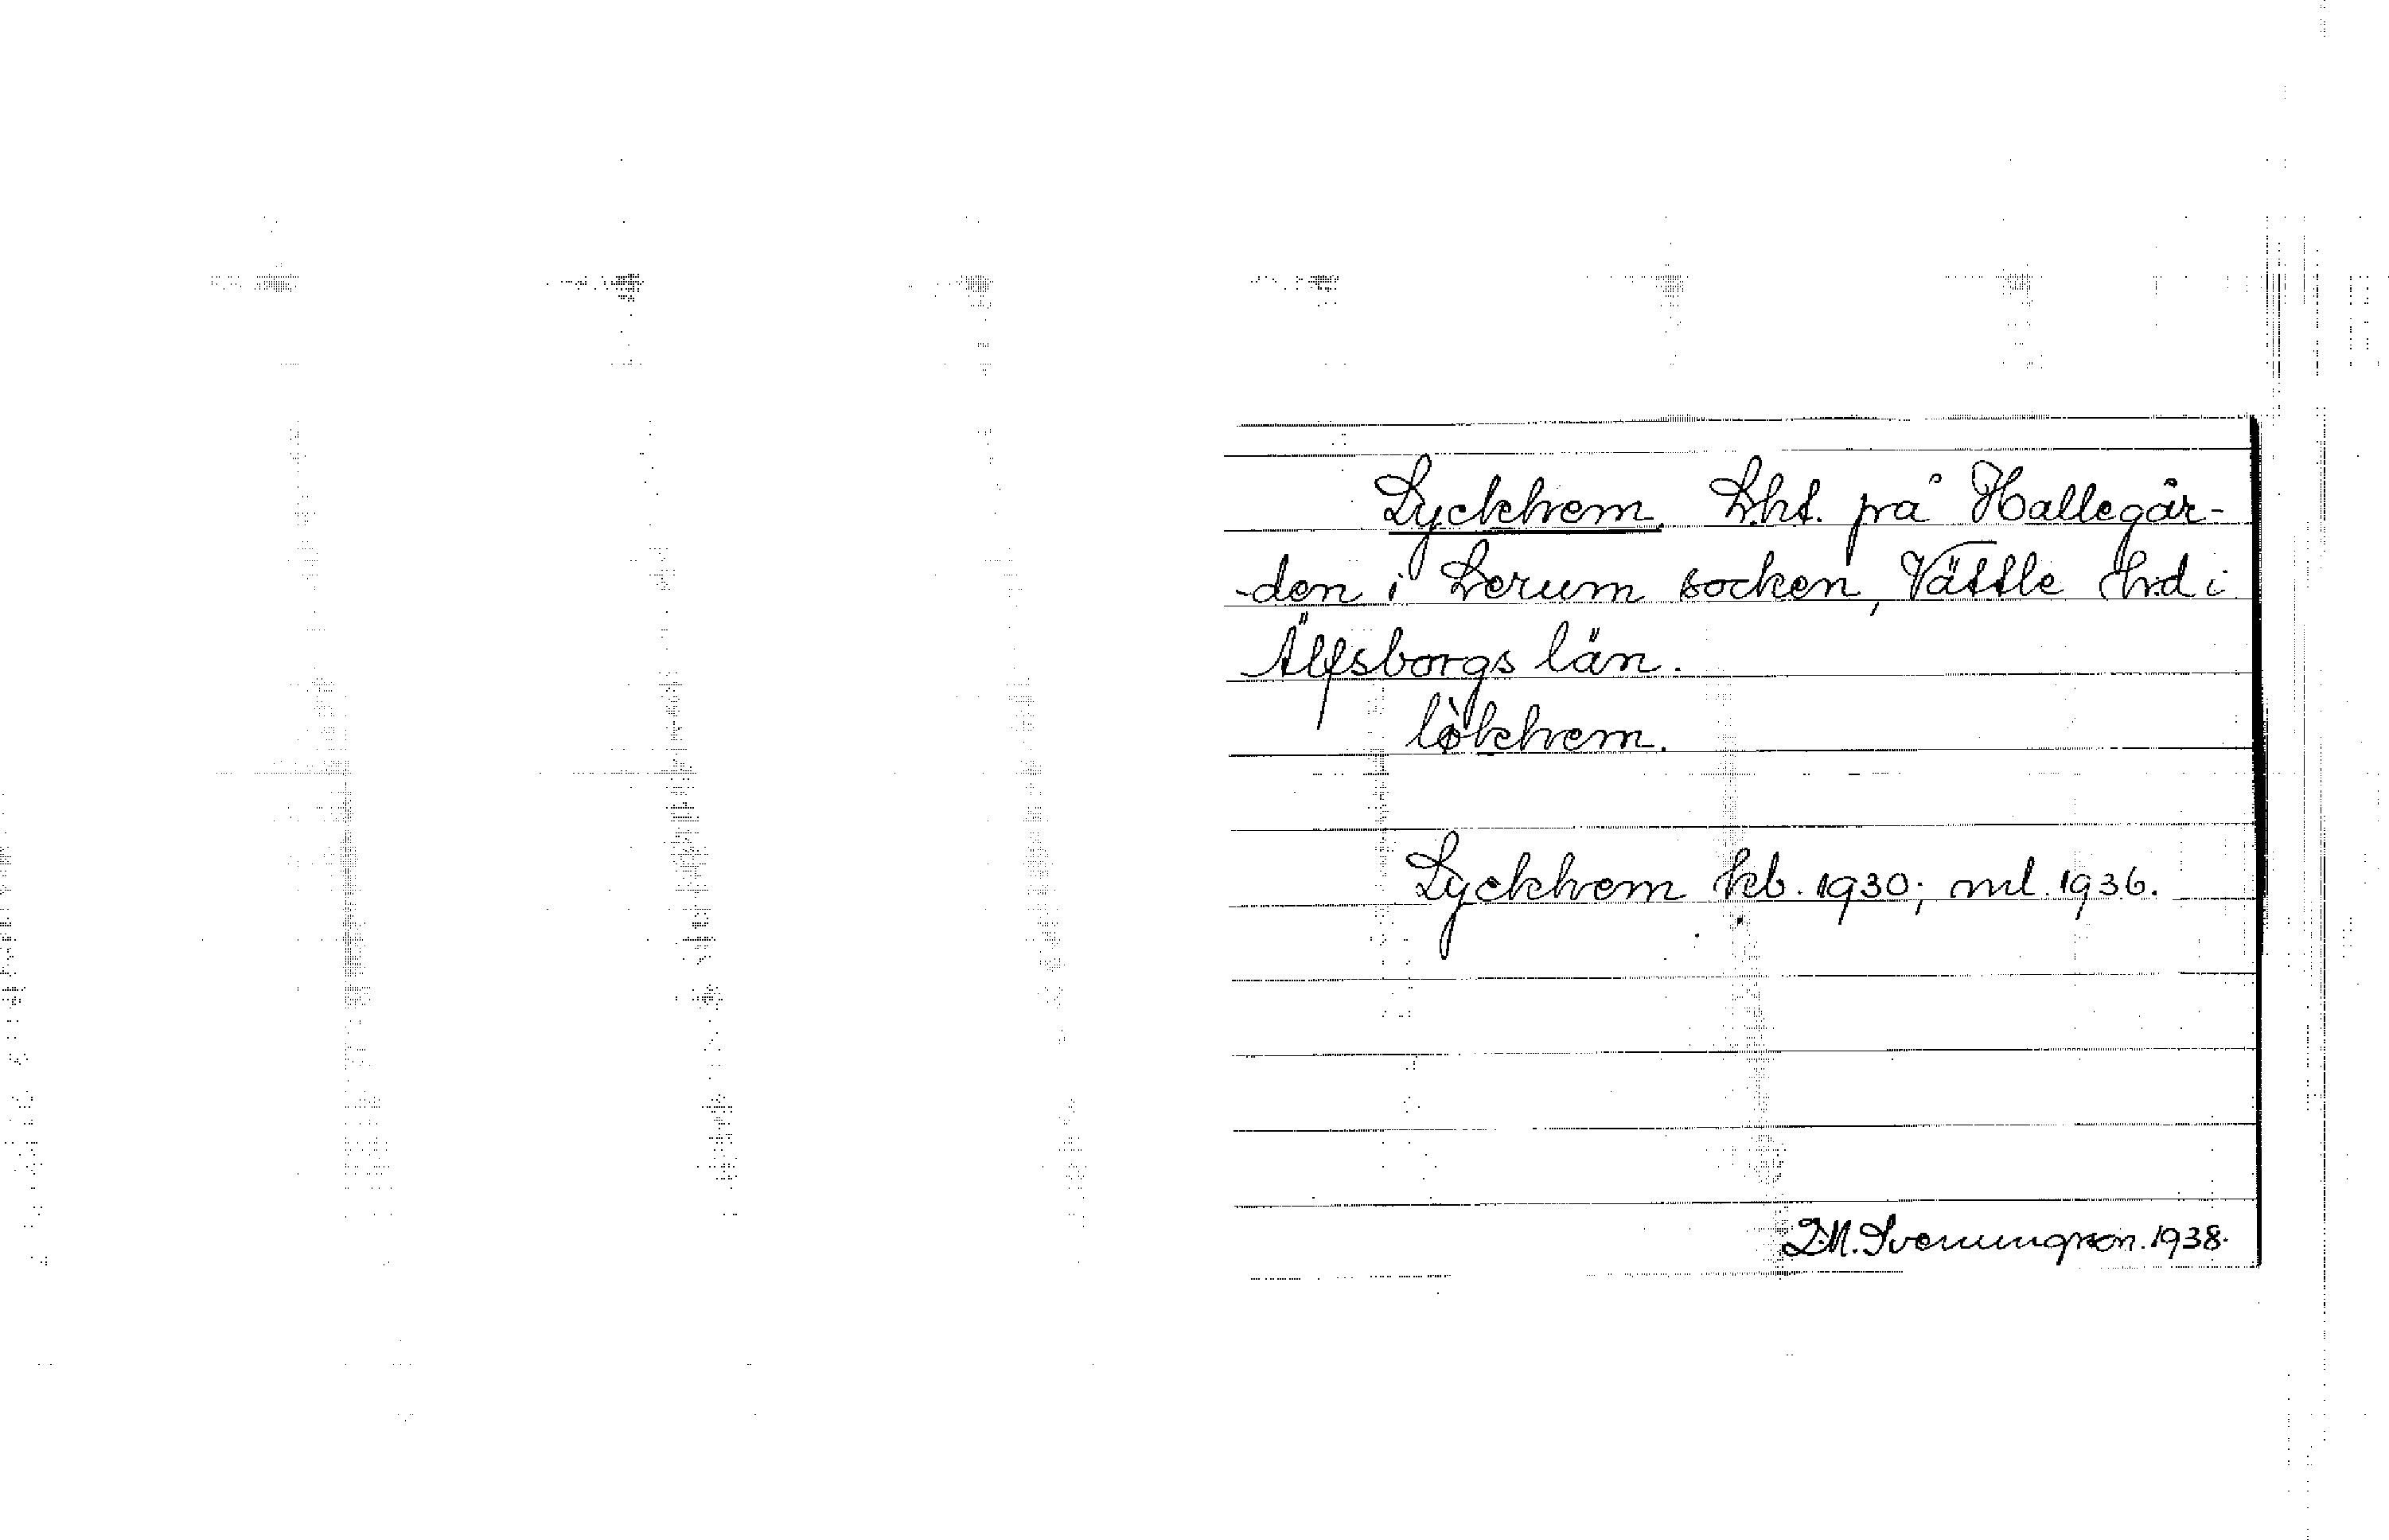 Lyckhem. Lht. på Hallegår-
-den i Lerum socken, Vättle hd i
Älfsborgs län.
lòkhem.
Lyckhem kb. 1930; ml. 1936.
D.M. Svenungson. 1938.